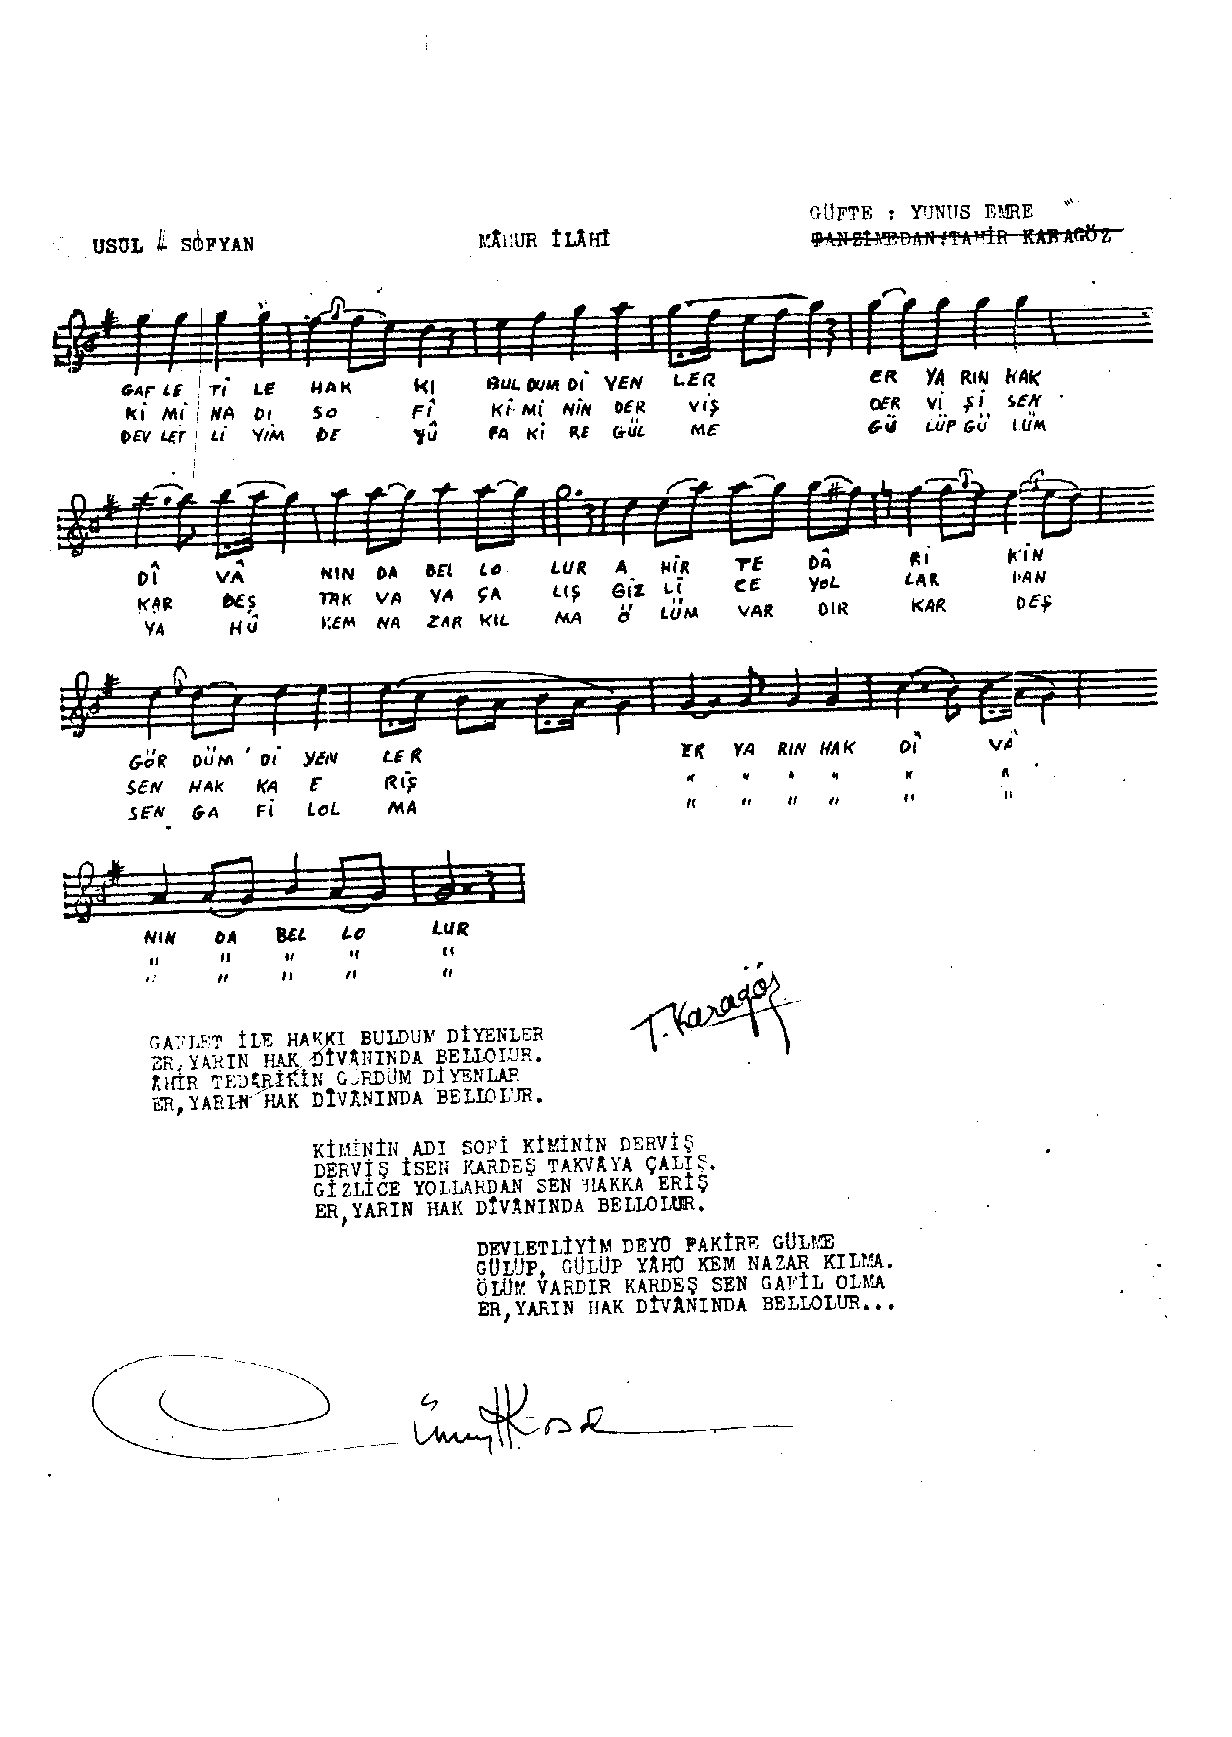 GÜFTE : YUNUS EMRE
USUL SOFYAN
MÂHUR İLÂHİ
TANZİMEDAN:TAHİR KARAGÖZ
GAF LE Tİ LE HAK KI BUL DUM Dİ YEN LER ER YA RIN HAK
Kİ Mİ NA DI SO FÎ Kİ Mİ NİN DER VİŞ DER Vİ Şİ SEN
DEV LET Lİ YİM DE YÛ FA Kİ RE GÜL ME GÜ LÜP GÜ LÜM
DÎ VÂ NIN DA BEL LO LUR A HİR TE DÂ Rİ KİN
KAR DEŞ TAK VA YA ÇA LIŞ GİZ Lİ CE YOL LAR DAN
YA HÛ KEM NA ZAR KIL MA Ö LÜM VAR DIR KAR DEŞ
GÖR DÜM Dİ YEN LER ER YA RIN HAK DÎ VÂ
SEN HAK KA E RİŞ " " " " " "
SEN GA Fİ LOL MA " " " " " "
NIN DA BEL LO LUR
" " " " "
" " " " "
T. Karagöz
GAFLET İLE HAKKI BULDUM DİYENLER
ER,YARIN HAK DİVÂNINDA BELLOLUR.
ÂHİR TEDÂRİKİN GÖRDÜM DİYENLAR
ER,YARIN HAK DİVÂNINDA BELLOLUR.
KİMİNİN ADI SOFİ KİMİNİN DERVİŞ
DERVİŞ İSEN KARDEŞ TAKVAYA ÇALIŞ.
GİZLİCE YOLLARDAN SEN HAKKA ERİŞ
ER,YARIN HAK DİVÂNINDA BELLOLUR.
DEVLETLİYİM DEYÜ FAKİRE GÜLME
GÜLÜP, GÜLÜP YÂHÜ KEM NAZAR KILMA.
ÖLÜM VARDIR KARDEŞ SEN GAFİL OLMA
ER,YARIN HAK DİVÂNINDA BELLOLUR...